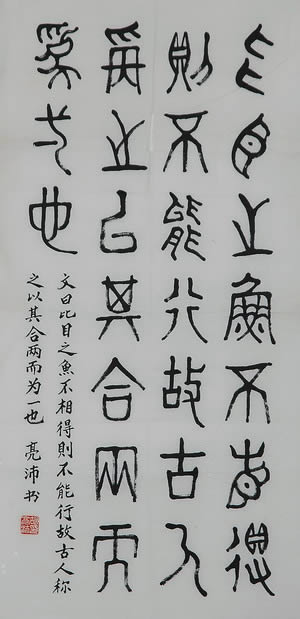 比目之魚不相得
則不能行故古人
爯之以其合兩而
為弌也
文曰比目之魚不相得則不能行故古人称
之以其合两而为一也 亮沛书